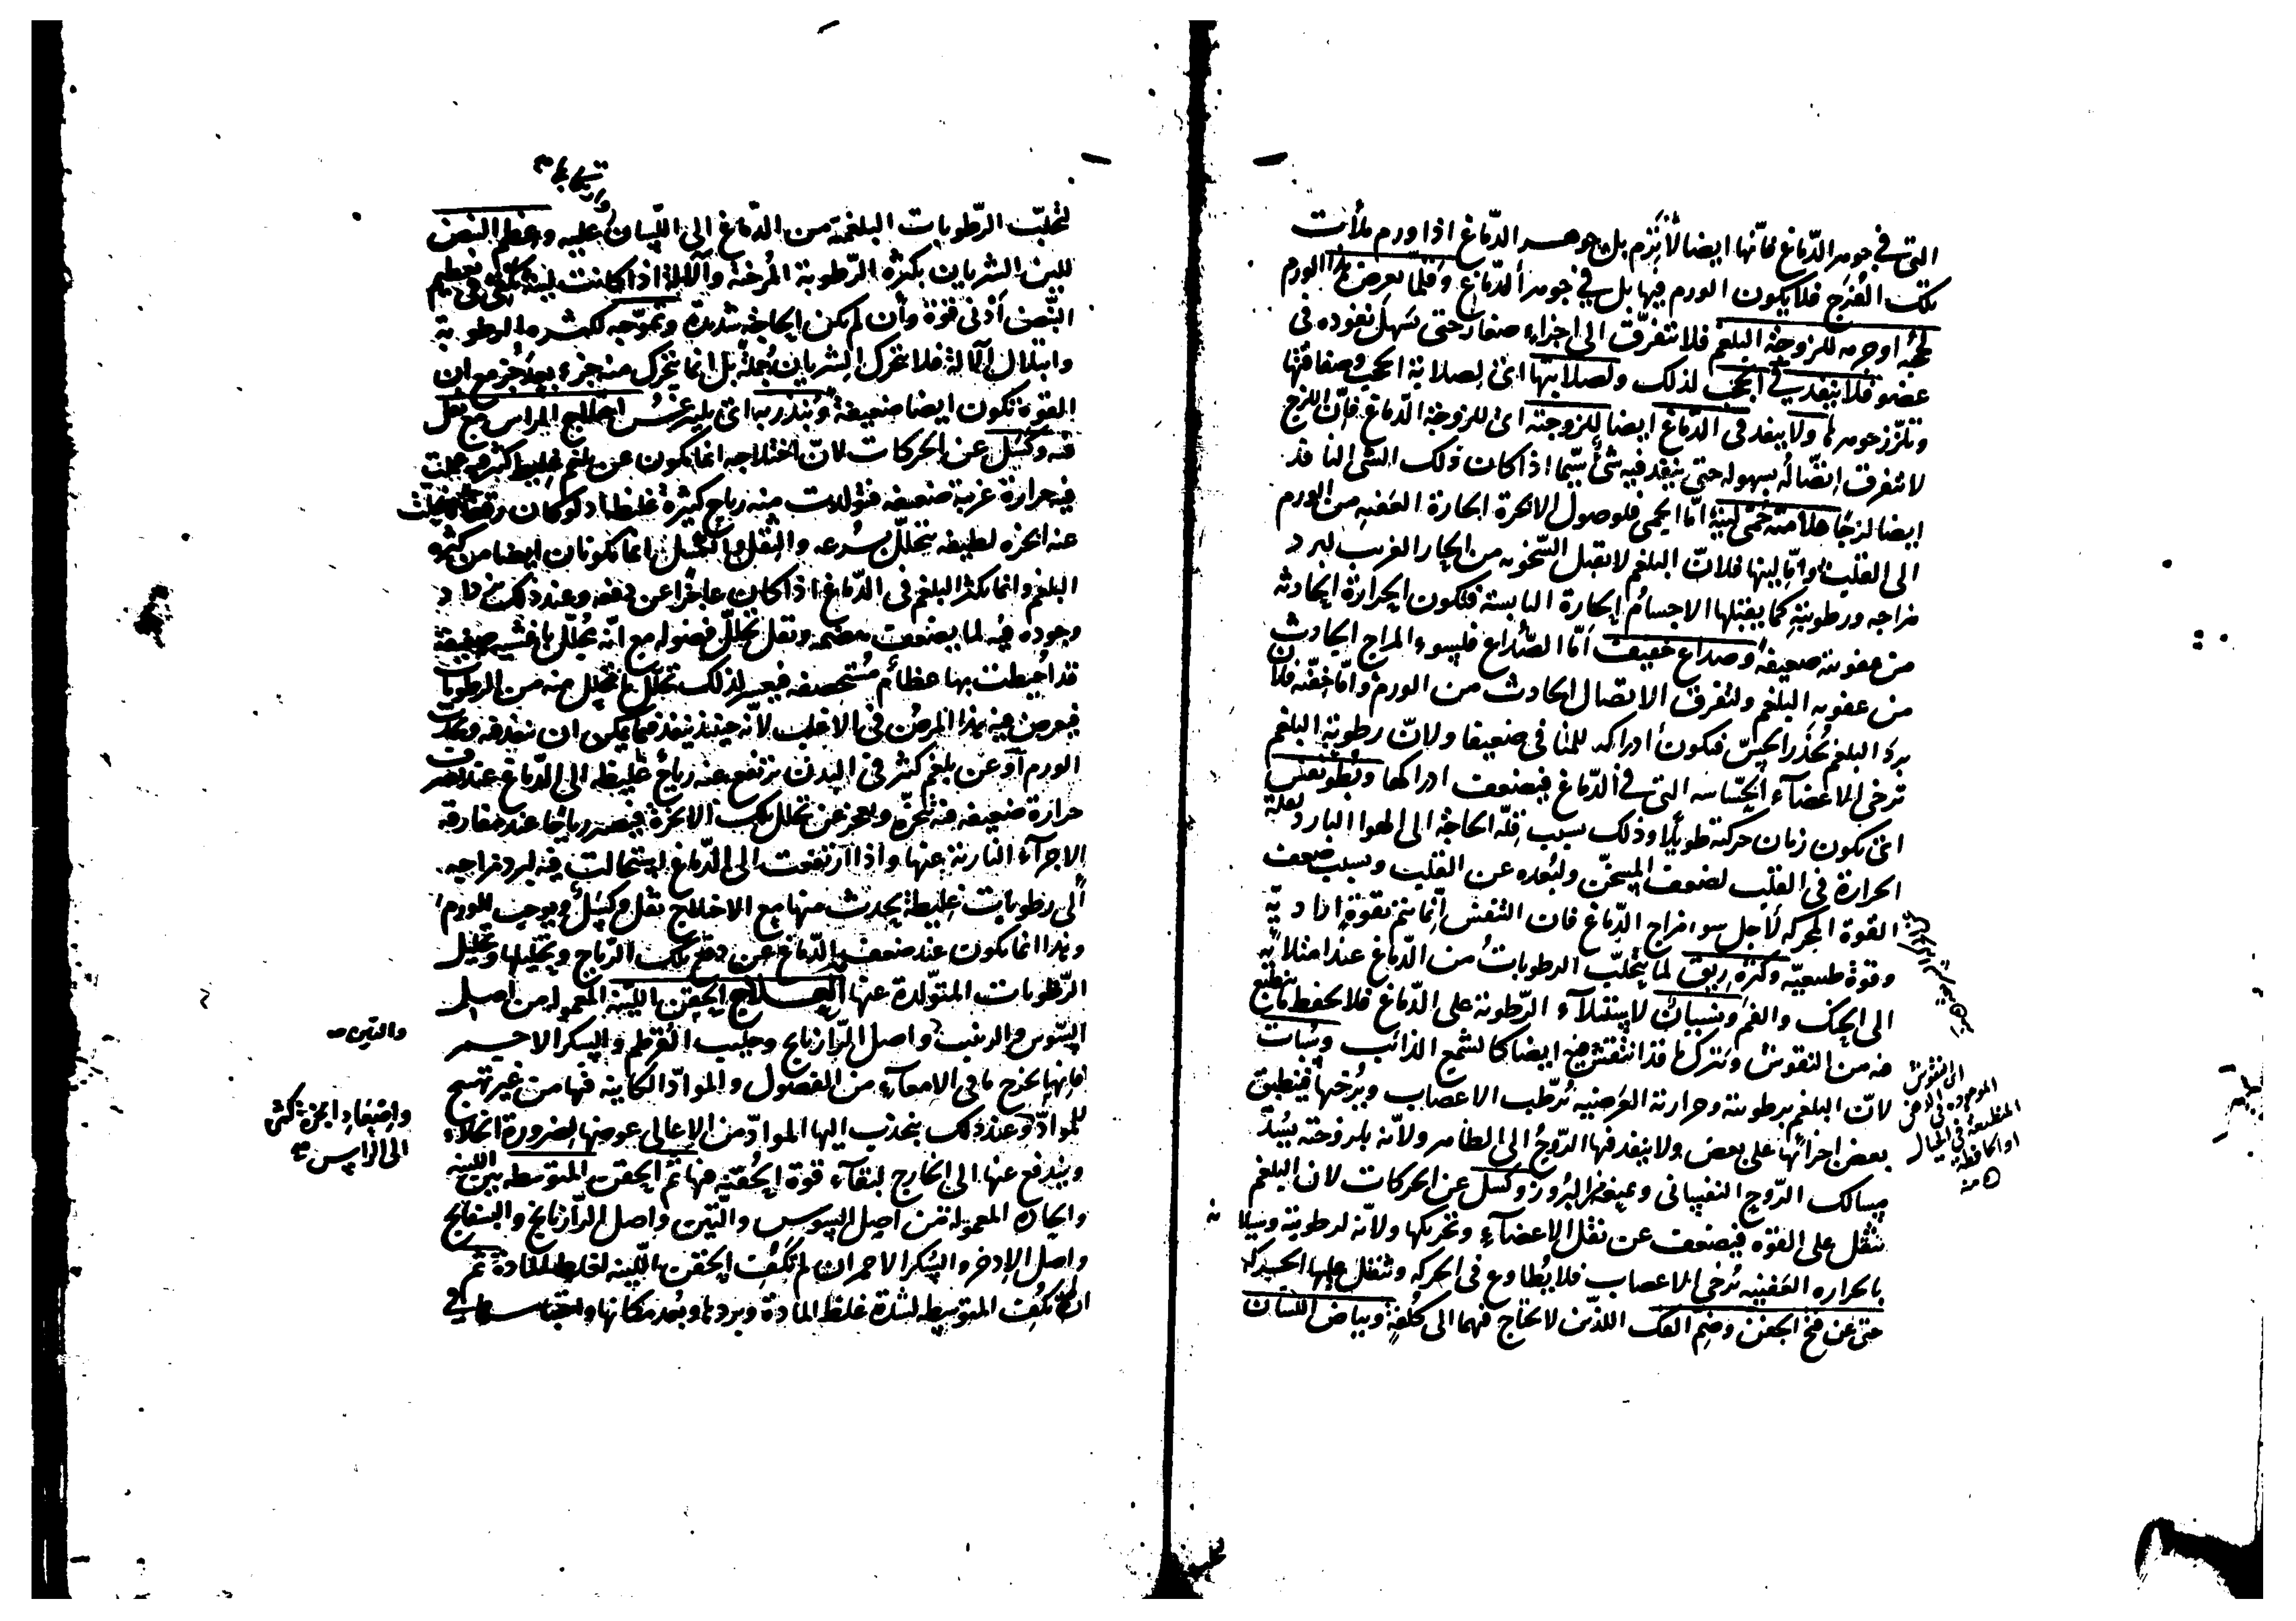 التى فى جوهر الدّماغ فانّها ايضا لا يَرِم بل جوهر الدّماغ اذا ورم ملأت
تلك الفُرَج فلا يكون الورم فيها بل فى جوهر الدّماغ وقلّما يعرض هذا الورم
فى حجبه او جرمه للزوجة البلغم فلا تتفرّق الى اجزاء صغار حتى يسهل نفوذه فى
عضو فلا ينفذ فى الحجب لذلك ولصلابتها اى لصلابة الحجب وصفاقتها
وتلزّز جوهرها ولا ينفذ فى الدّماغ ايضا للزوجته اى للزوجة الدّماغ فانّ اللزج
لا يتفرق اتّصاله بسهولة حتى ينفذ فيه شئ سيّما اذا كان ذلك الشئ النافذ
ايضا لزجا علامته حمّى لينة امّا الحمى فلوصول الابخرة الحارة العفنة من الورم
الى القلب وامّا لينها فلانّ البلغم لا يقبل السّخونة من الحار الغريب لبرد
مزاجه ورطوبته كما يقبلها الاجسام الحارة اليابسة فتكون الحرارة الحادثة
من عفونته ضعيفة وصداع خفيف امّا الصّداع فلسوء المزاج الحادث
من عفونة البلغم ولتفرق الاتصال الحادث من الورم وامّا خفّته فلان
برد البلغم يُخدّر الحسّ فيكون ادراكه للمنافى ضعيفا ولانّ رطوبة البلغم
ترخى الاعضاء الحسّاسة التى فى الدّماغ فيضعف ادراكها وبُطؤ نفس
اى يكون زمان حركته طويلا وذلك بسبب قلّة الحاجة الى الهواء البارد لقلة
الحرارة فى القلب لضعف المسخّن ولبُعده عن القلب وبسبب ضعف
القوة المحركة لاجل سوء مزاج الدّماغ فان التنفس انّما يتم بقوة ارادية
وقوة طبيعيّة وكثرة ريق لما يتحلّب الرطوبات من الدّماغ عند امتلائه
الى الحنك والفم ونسيان لاستيلاء الرّطوبة على الدّماغ فلا يحفظ ما ينطبع
فيه من النقوش وتترك ما قد انتقش فيه ايضا كالشمع الذائب وسُبات
لانّ البلغم برطوبته وحرارته العَرَضية تُرطّب الاعصاب ويُرخيها فينطبق
بعض اجزائها على بعض ولا ينفذ فيها الرّوح الى الظاهر ولانّه بلزوجته يسُدّ
مسالك الرّوح النفسانى وعيقه البُروز وكسل عن الحركات لان البلغم
يثقل على القوّة فيضعف عن نقل الاعضاء وتحريكها ولانّه لرطوبته وسيلا
بالحرارة العَفنية يُرخى الاعصاب فلا يُطاوع فى الحركة وتثقل عليها الحركة
حتى عن فتح الجفن وضم الفك اللذين لا يحتاج فيهما الى كُلفة وبياض اللسان
الى النقوش
الموجودة فى الذهن
المنطبعة فى الخيال
او الحافظة
ه منه
لتحلّب الرّطوبات البلغمية من الدّماغ الى اللّسان وغلبته عليه وعظم النبض
للين الشريان بكثرة الرّطوبة المُرخية والآلة اذا كانت لينة يكفى فى تعظيم
النّبض اَدْنى قوّة وان لم يكن الحاجة شديدة وتموّجه لكثرة الرطوبة
وابتلال الآلة فلا يتحرك الشريان جُملة بل انما يتحرك منه جزء بعد جزء مع ان
القوة تكون ايضا ضعيفة ويُنذر به اى بليثرغس اختلاج الراس مع ثقل
فيه وكسل عن الحركات لانّ اختلاجه انما يكون عن بلغم غليظ كثير عملت
فيه حرارة غريبة ضعيفة فتولدت منه رياح كثيرة غليظة اذ لو كان رقيقا تحلّلت
عنه ابخرة لطيفة تتحلّل بسُرعة والثقل والكسل انما يكونان ايضا من كثرة
البلغم وانما يكثر البلغم فى الدّماغ اذا كان عاجزا عن دفعه وعند ذلك يزداد
وجوده فيه لما يضعف هضمه ويقل تحلّل فضوله مع انّه مجلّل باغشية صفيقة
قد اُحيطت بها عظام مُستحصفة فيعسر لذلك تحلّل ما يتحلل منه من الرطوبات
فيعرض فيه هذا المرض فى الاغلب لانّه حينئذ ينفذ فيما يمكن ان ينفذ فيه ويحدث
الورم او عن بلغم كثر فى البدن يرتفع عنه رياح غليظة الى الدّماغ عند تصرف
حرارة ضعيفة فيه تُبخّره ويعجز عن تحلل تلك الابخرة فيصير رياحا عند مفارقة
الاجزآء النارية عنها واذا ارتفعت الى الدّماغ استحالت فيه لبرد مزاجه
الى رطوبات غليظة يحدث منها مع الاختلاج ثقل وكسل ويوجب الورم
وهذا انما يكون عند ضعف الدّماغ عن دفع تلك الرّياح وتحليلها وتحليل
الرّطوبات المتولّدة عنها العلاج الحقن اللّينة المعمولة من اصل
السّوس والزبيب واصل الرّازيانج وحليب القرطم والسكر الاحمر
فانها يخرج ما فى الامعآء من الفضول والموادّ الكاينة فيها من غير تهييج
للموادّ وعند ذلك ينجذب اليها الموادّ من الاعالى عوضها لضرورة الخلاء
ويندفع عنها الى الخارج لبقآء قوة الحُقنة فيها ثم الحقن المتوسطة بين اللّينة
والحادة المعمولة من اصل السوس والتّين واصل الرّازيانج والبسفايج
واصل الاذخر والسّكر الاحمر ان لم تكفِ الحقن اللّينة لغلظ المادة ثم
ان لم تكفِ المتوسطة لشدة غلظ المادة وبردها وبُعد مكانها واحتباسها فى
والتين صح
واصعاد ابخرة كثيرة
الى الراس صح